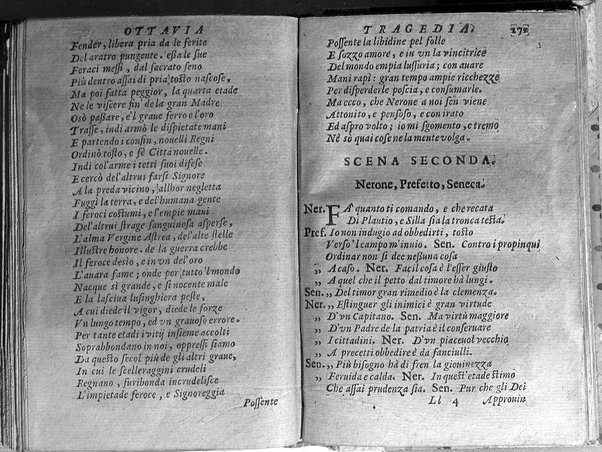 OTTAVIA
Fender, libera pria da le ferite
Del aratro pungente. eßa le sue
Feraci messi, dal sacrato seno
Più dentro assai di pria tosto nascose,
Ma poi fatta peggior, la quarta etade
Ne le viscere fin' de la gran Madre
Osò passare, e'l graue ferro e l'oro
Trasse, indi armò le dispietate mani
E partendo i confin, nouelli Regni
Ordinò tosto, e fè Città nouelle.
Indi col'arme i tetti suoi difese
E cercò del'altrui farsi Signore
A la preda vicino, allhor negletta
Fuggì la terra, e del'humana gente
I feroci costumi, e l'empie mani
Del'altrui strage sanguinosa asperse,
L'alma Vergine Astrea, del'alte stelle
Illustre honore. de la guerra crebbe
Il feroce desio, e in vn del'oro
L'auara fame; onde per tutto'l mondo
Nacque sì grande, e sì nocente male
E la lasciua lusinghiera peste,
A cui diede il vigor, diede le forze
Vn lungo tempo, ed vn grauoso errore.
Per tante etadi i vitij insieme accolti
Soprabbondano in noi, oppressi siamo
Da questo secol più de gli altri graue,
In cui le scelleraggini crudeli
Regnano, furibonda incrudelisce
L'impietade feroce, e Signoreggia
Possente
TRAGEDIA. 272
Possente la libidine pel folle
E sozzo amore, e in vn la vincitrice
Del mondo empia lussuria; con auare
Mani rapì: gran tempo ampie ricchezze
Per disperderle poscia, e consumarle.
Ma ecco, che Nerone a noi sen viene
Attonito, e pensoso, e con irato
Ed aspro volto; io mi sgomento, e tremo
Nè sò quai cose ne la mente volga.
SCENA SECONDA.
Nerone, Prefetto, Seneca.
Ner. FA' quanto ti comando, e che recata
Di Plautio, e Silla sia la tronca testa.
Pref. Io non indugio ad obbedirti, tosto
Verso'l campo m'inuio. Sen. Contro i propinqui
Ordinar non si dee neßuna cosa
„ A caso. Ner. Facil cosa è l'esser giusto
„ A quel che il petto dal timore hà lungi.
Sen. „ Del timor gran rimedio è la clemenza.
Ner. „ Estinguer gli inimici è gran virtude
„ D'vn Capitano. Sen. Ma virtù maggiore
„ D'vn Padre de la patria è il conseruare
„ I cittadini. Ner. D'vn piaceuol vecchio
„ A precetti obbedire è da fanciulli.
Sen. „ Più bisogno hà di fren la giouinezza
„ Feruida e calda. Ner. In quest'etade stimo
Che assai prudenza sia. Sen. Pur che gli Dei
Ll 4 Approuin